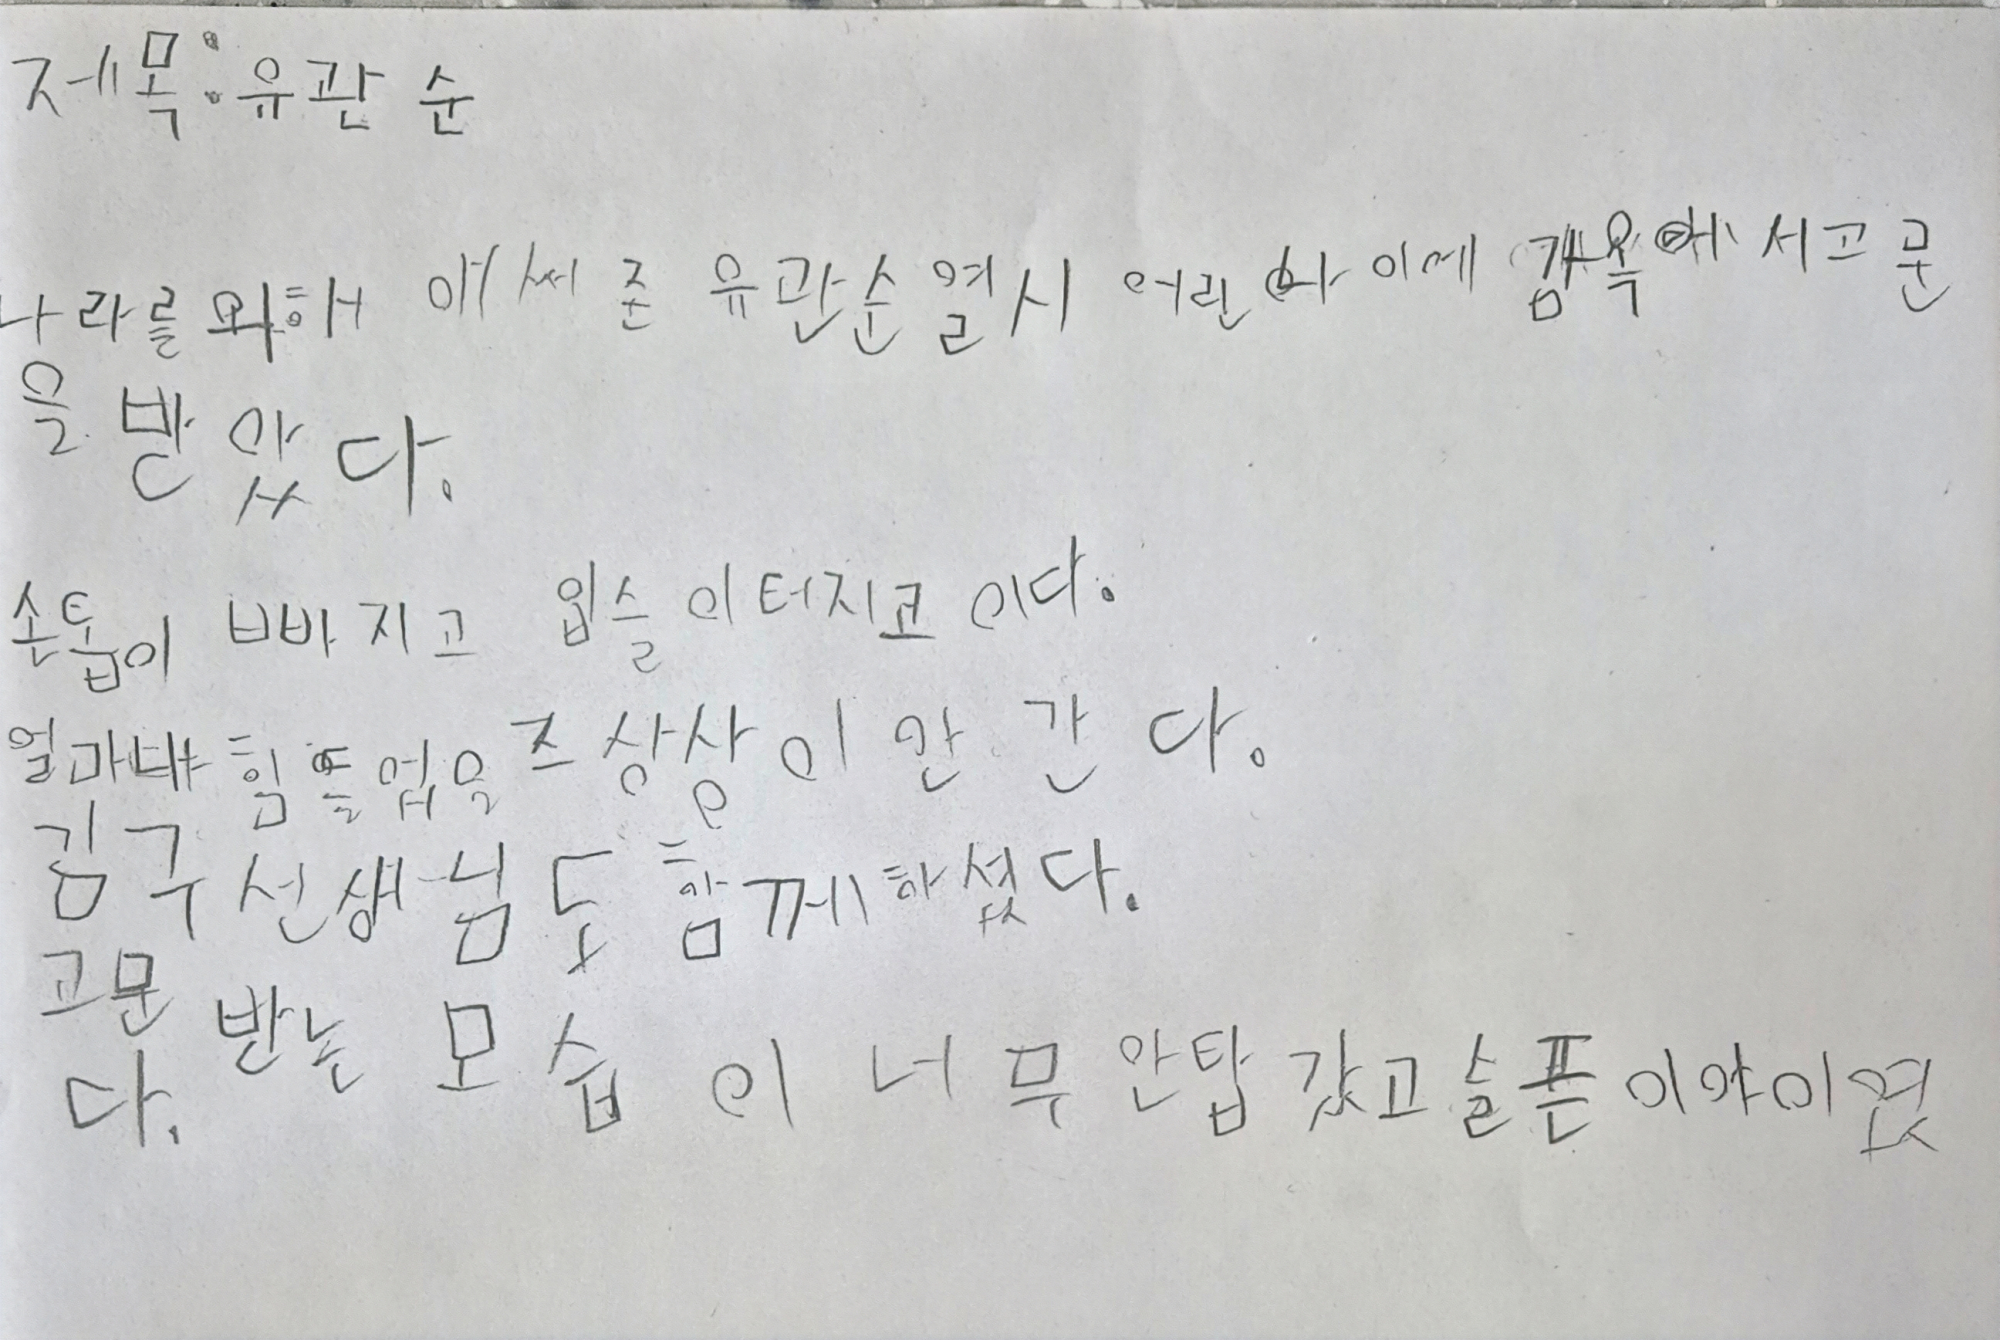 제목:유관순
나라를 위해 애써준 유관순 열시 어린 나이에 감옥에서 고문
을 받았다.
손톱이 빠지고 입슬이 터지고 이다.
얼마나 힘들었을즈 상상이 안 간다.
김구 선생님도 함께하셨다.
고문 받는 모습이 너무 안탑갔고 슬픈 이야이였
다.